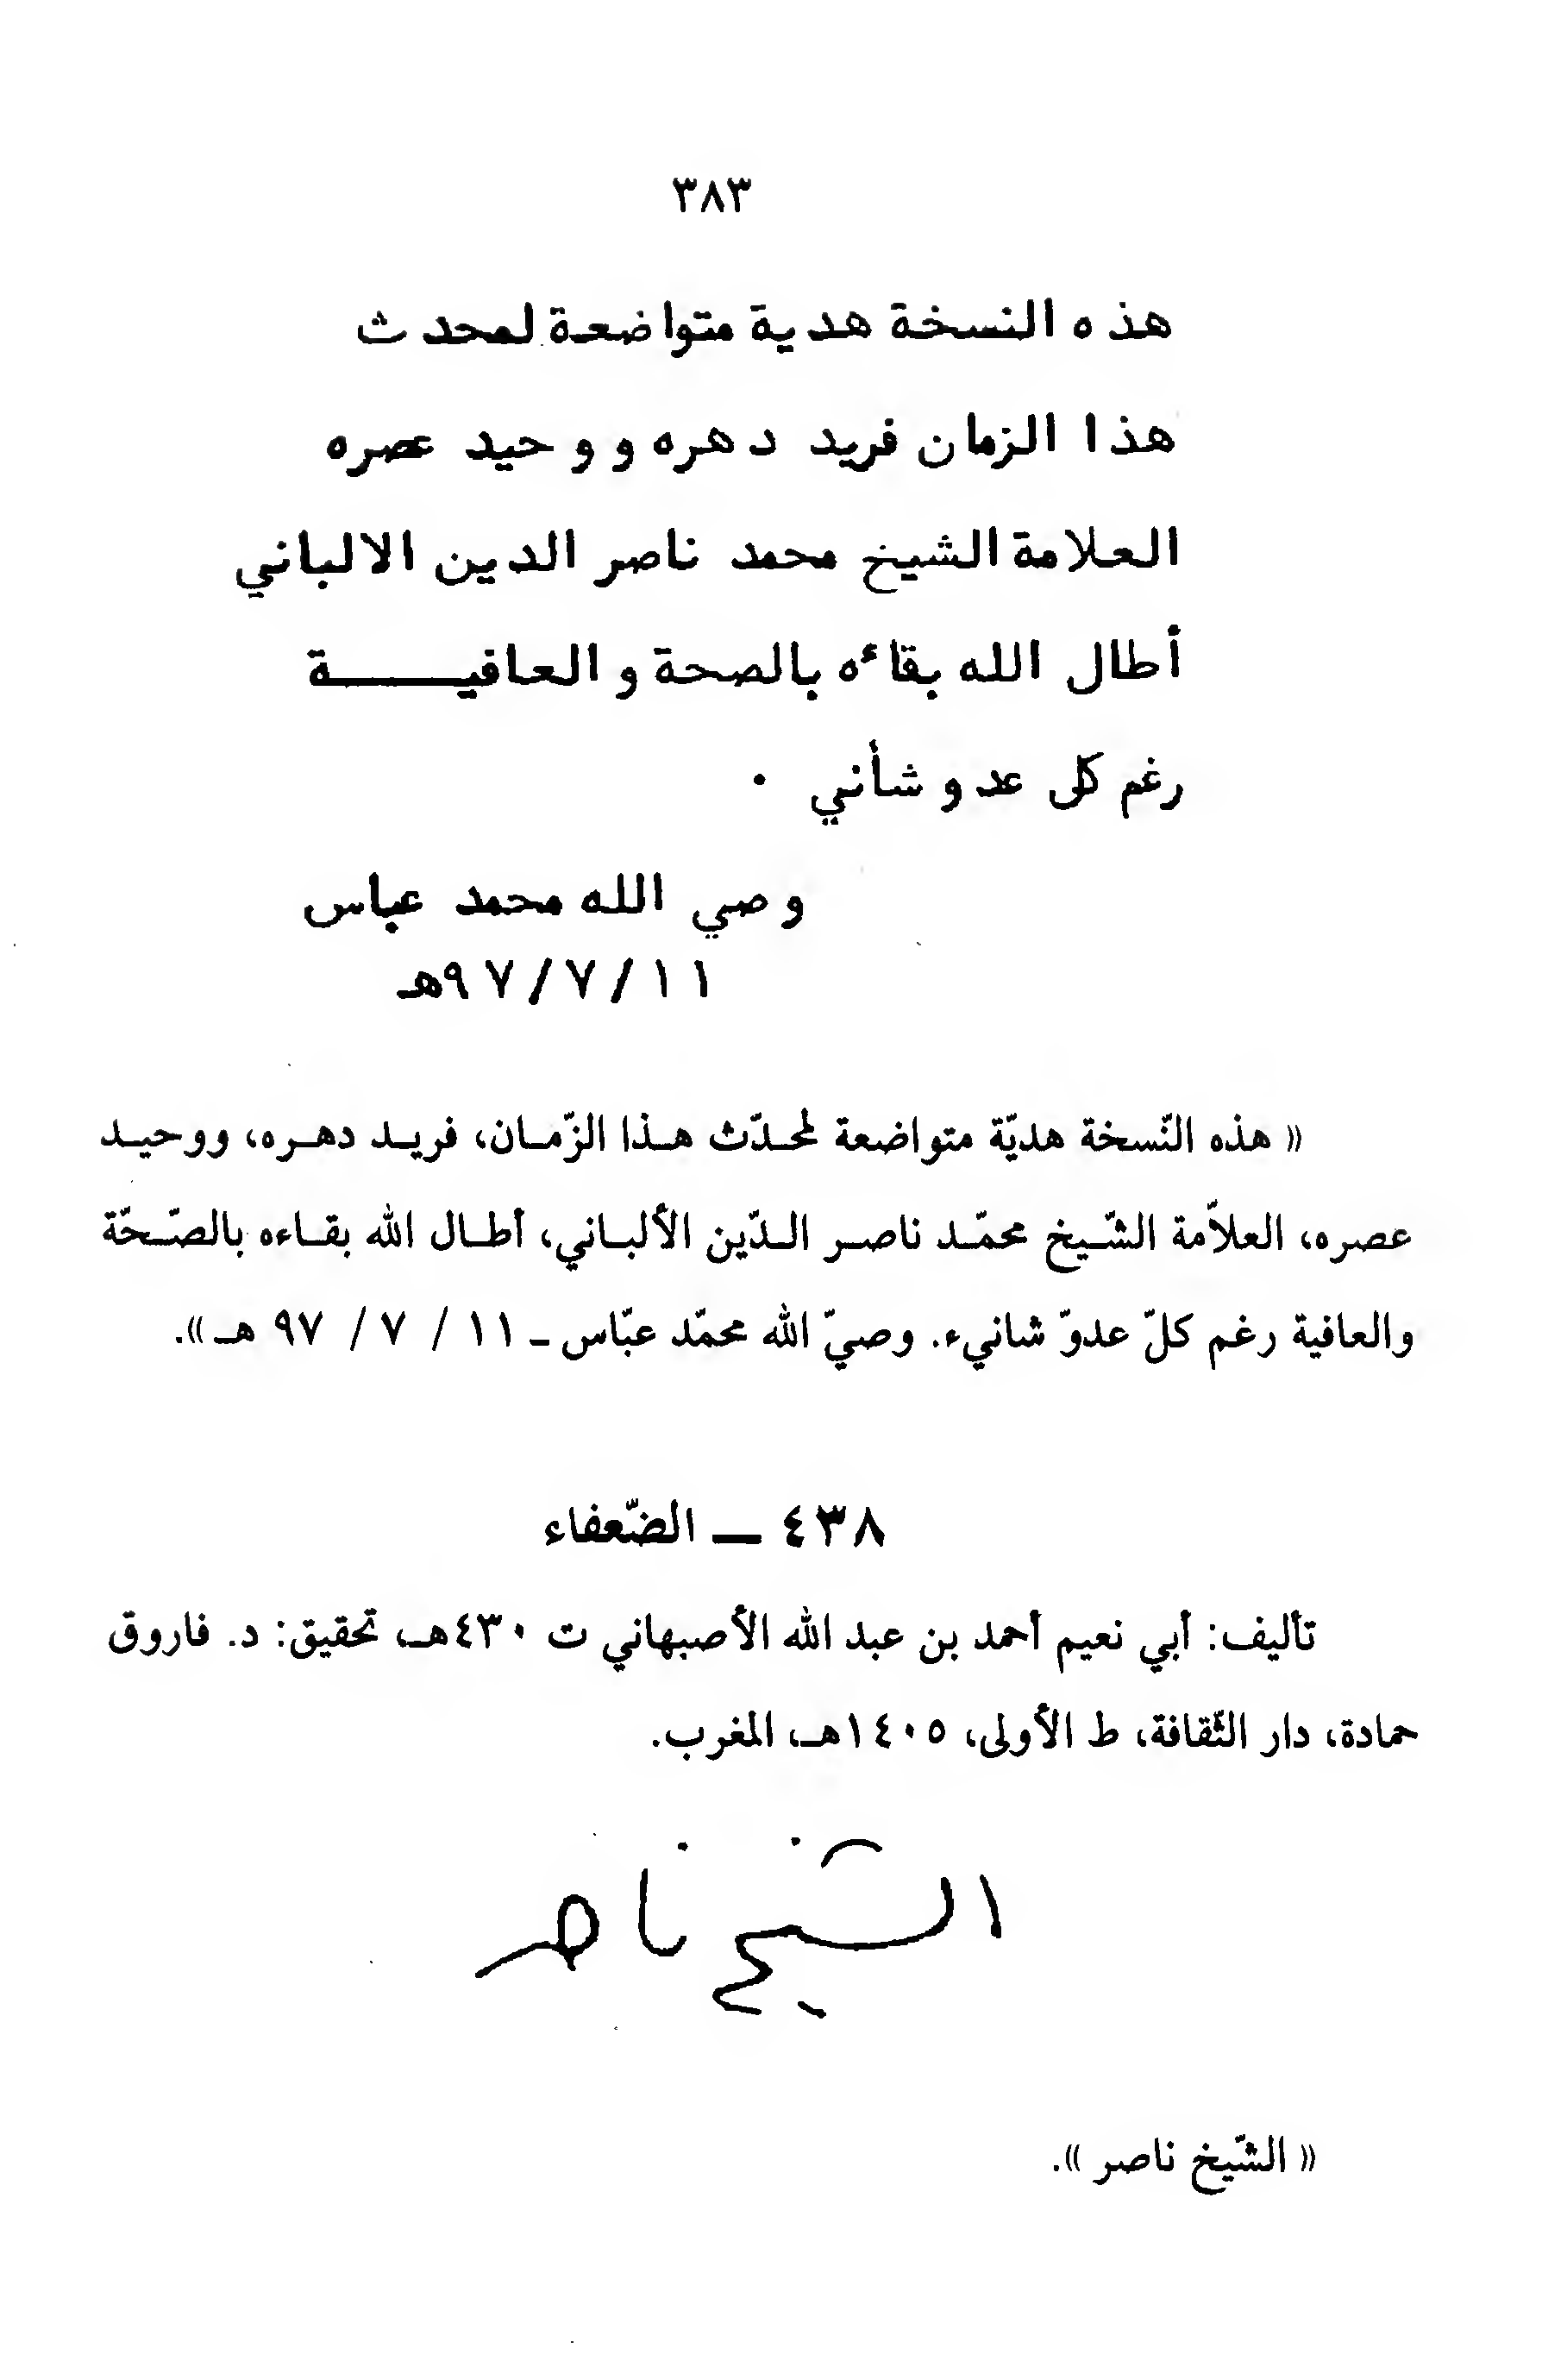 ٣٨٣
هذه النسخة هدية متواضعة لمحدث
هذا الزمان فريد دهره ووحيد عصره
العلامة الشيخ محمد ناصر الدين الالباني
أطال الله بقاءه بالصحة والعافيـــــة
رغم كل عدو شأني .
وصي الله محمد عباس
١١/٧/٩٧هـ
« هذه النّسخة هديّة متواضعة لمحـدّث هـذا الزّمـان، فريـد دهـره، ووحيـد
عصره، العلاّمة الشّـيخ محمّـد ناصـر الـدّين الألبـاني، أطـال الله بقـاءه بالصّـحّة
والعافية رغم كلّ عدوّ شانيء. وصيّ الله محمّد عبّاس ـ ١١ / ٧ / ٩٧ هـ ».
٤٣٨ ــ الضّعفاء
تأليف: أبي نعيم أحمد بن عبد الله الأصبهاني ت ٤٣٠هـ، تحقيق: د. فاروق
حمادة، دار الثّقافة، ط الأولى، ١٤٠٥هـ، المغرب.
الشيخ ناصر
« الشّيخ ناصر ».